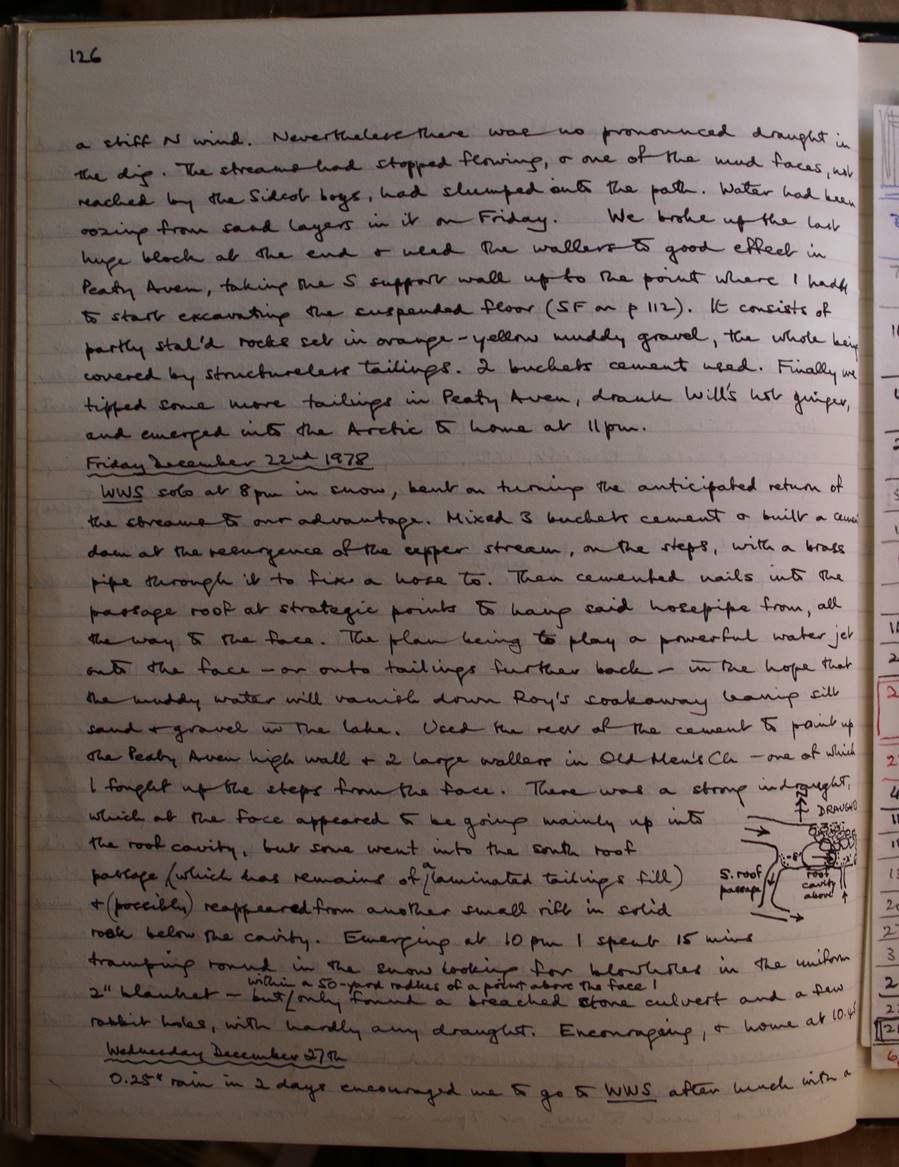 126
a stiff N wind. Nevertheless there was no pronounced draught in
the dig. The streams had stopped flowing, & one of the mud faces, not
reached by the Sidcot boys, had slumped onto the path. Water had been
oozing from sand layers in it on Friday. We broke up the last
huge block at the end & used the wallers to good effect in
Peaty Aven, taking the S support wall up to the point where I had
to start excavating the suspended floor (SF on p 112). It consists of
partly stal'd rocks set in orange-yellow muddy gravel, the whole being
covered by structureless tailings. 2 buckets cement used. Finally we
tipped some more tailings in Peaty Aven, drank Will's hot ginger,
and emerged into the Arctic to home at 11 pm.
Friday December 22nd 1978
WWS solo at 8pm in snow, bent on turning the anticipated return of
the streams to our advantage. Mixed 3 buckets cement & built a cement
dam at the resurgence of the upper stream, on the steps, with a brass
pipe through it to fix a hose to. Then cemented nails into the
passage roof at strategic points to hang said hosepipe from, all
the way to the face. The plan being to play a powerful water jet
onto the face - or onto tailings further back - in the hope that
the muddy water will vanish down Roy's soakaway leaving silt
sand & gravel in the lake. Used the rest of the cement to point up
the Peaty Aven high wall & 2 large wallers in Old Men's Ch - one of which
I fought up the steps from the face. There was a strong indraught,
which at the face appeared to be going mainly up into
the roof cavity, but some went into the south roof
passage (which has remains of a laminated tailings fill)
& (possibly) reappeared from another small rift in solid
rock below the cavity. Emerging at 10 pm I spent 15 mins
tramping round in the snow looking for blowholes in the uniform
2" blanket - but within a 50-yard radius of a point above the face! only found a breached stone culvert and a few
rabbit holes, with hardly any draught. Encouraging, & home at 10.45
Wednesday December 27th
0.25" rain in 2 days encouraged me to go to WWS after lunch with a
N
DRAUGHT
S. roof
passage
roof
cavity
above